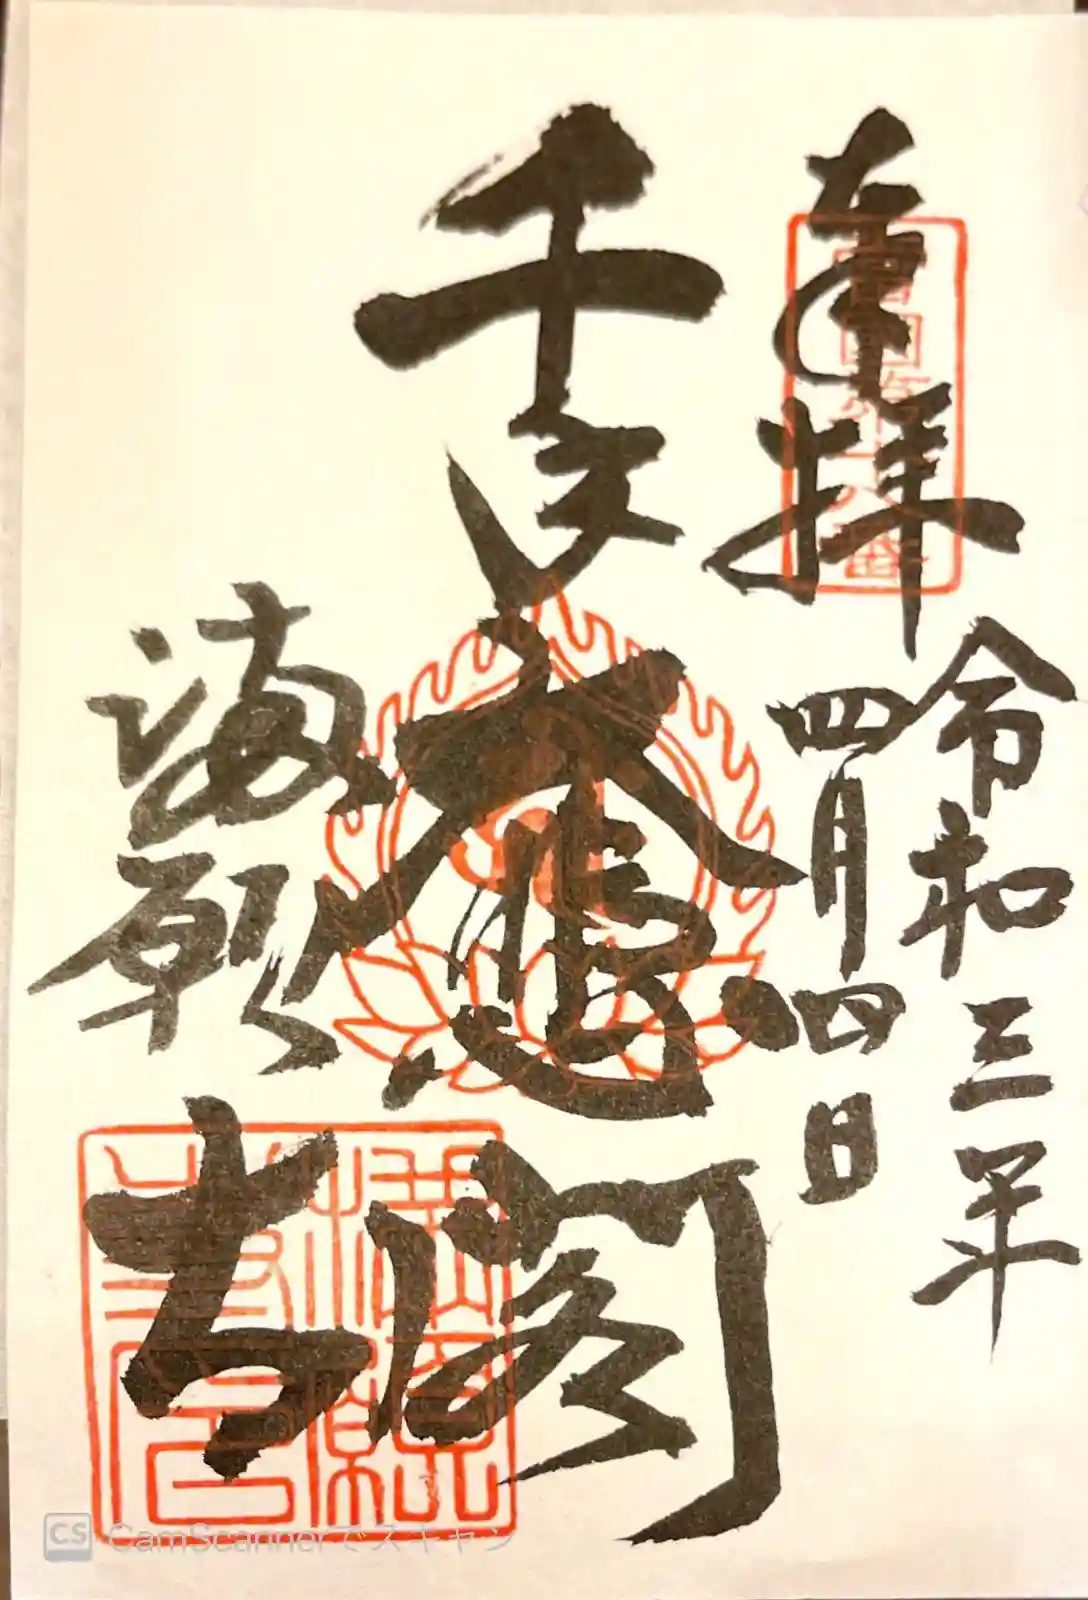 奉拝
令和三年
四月四日
千手大悲閣
満願寺
CS CamScannerでスキャン